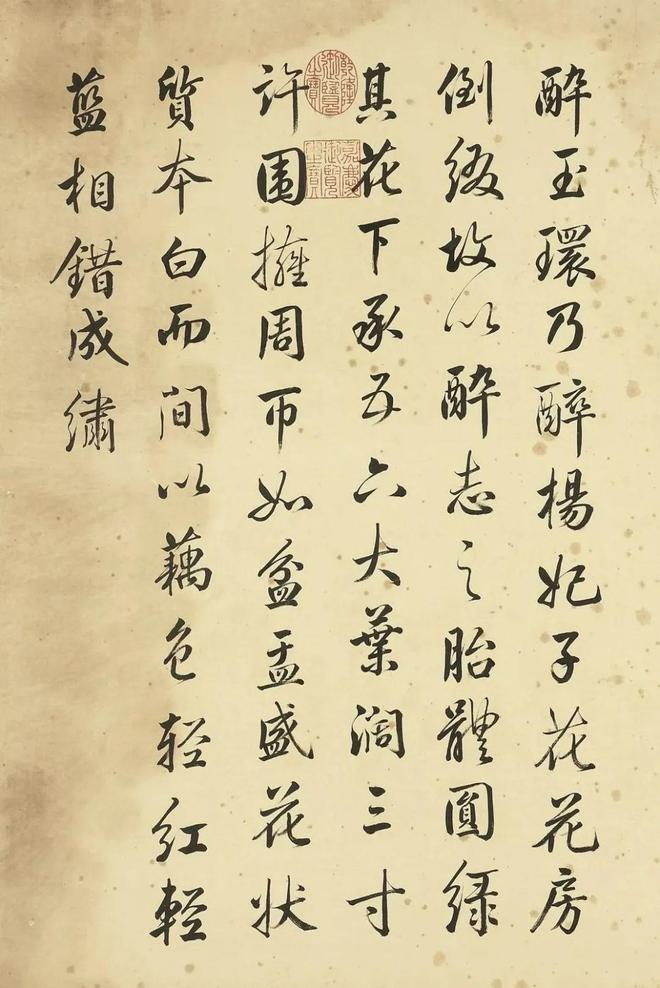 醉玉環乃醉楊妃子花花房
倒綴故以醉志之胎體圓綠
其花下承五六大葉濶三寸
許圍擁周帀如盆盂盛花狀
質本白而間以藕色轻红輕
藍相錯成繡